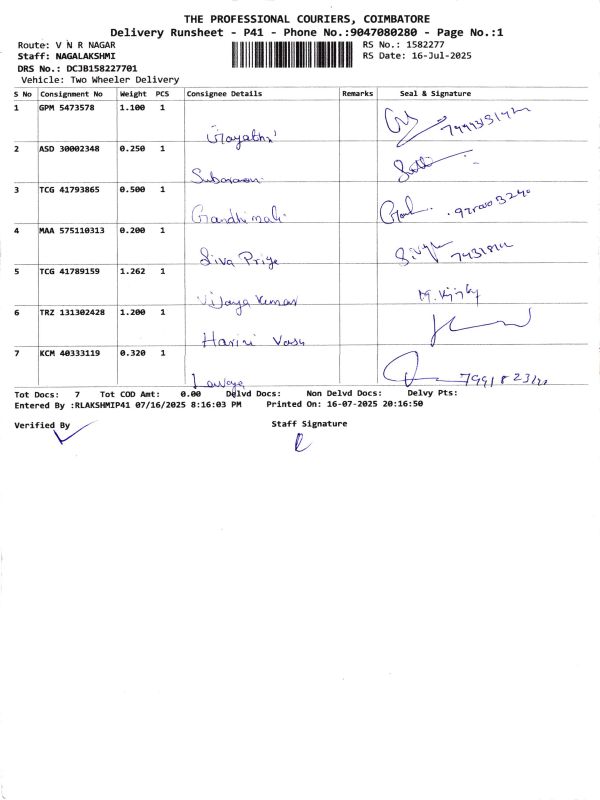 THE PROFESSIONAL COURIERS, COIMBATORE
Delivery Runsheet - P41 - Phone No.:9047080280 - Page No.:1
Route: V N R NAGAR RS No.: 1582277
Staff: NAGALAKSHMI RS Date: 16-Jul-2025
DRS No.: DCJB158227701
Vehicle: Two Wheeler Delivery
S No Consignment No Weight PCS Consignee Details Remarks Seal & Signature
1 GPM 5473578 1.100 1
Gayathri
2 ASD 30002348 0.250 1
3 TCG 41793865 0.500 1
Gandhimathi
4 MAA 575110313 0.200 1
Siva Priya
5 TCG 41789159 1.262 1
Vijaya Kumar
6 TRZ 131302428 1.200 1
Harini Vasu
7 KCM 40333119 0.320 1
Lavanya
Tot Docs: 7 Tot COD Amt: 0.00 Delvd Docs: Non Delvd Docs: Delvy Pts:
Entered By :RLAKSHMIP41 07/16/2025 8:16:03 PM Printed On: 16-07-2025 20:16:50
Verified By Staff Signature